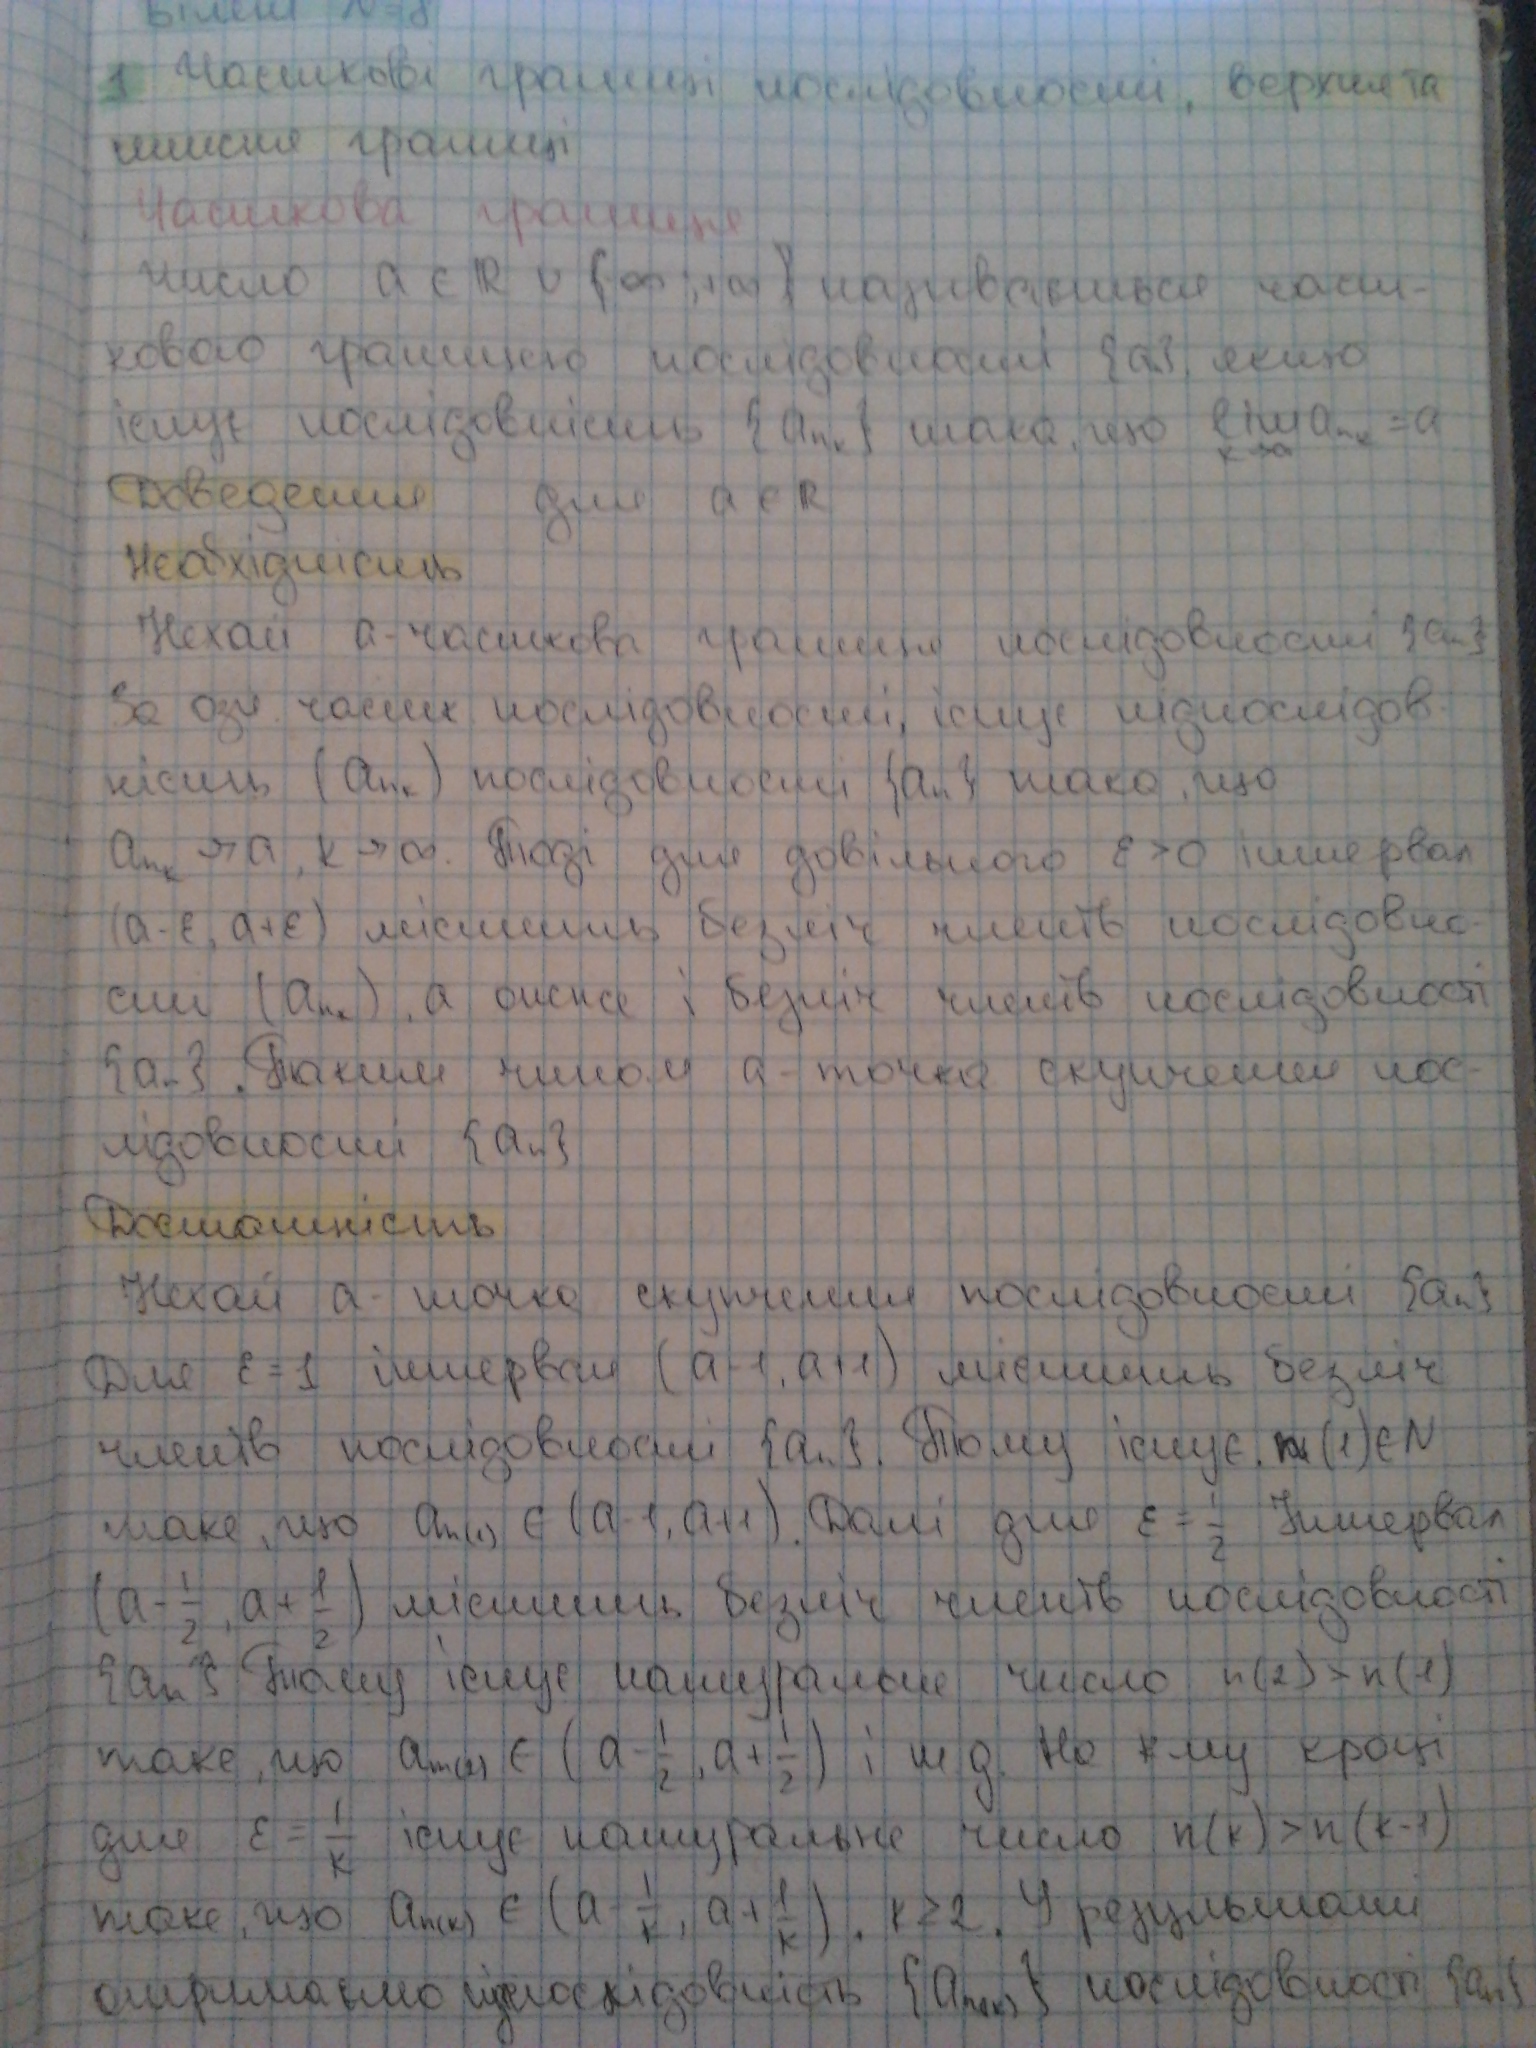 Білет №8
1 Часткові границі послідовності, верхня та
нижня границі
Часткова границя
Число a ∈ ℝ ∪ {∞;+∞} називається част-
ковою границею послідовності {aₙ}, якщо
існує послідовність {aₙₖ} така, що lim aₙₖ = a
k→∞
Доведення для a ∈ ℝ
Необхідність
Нехай a - часткова границя послідовності {aₙ}
За озн. частк послідовності, існує підпослідов-
ність (aₙₖ) послідовності {aₙ} така, що
aₙₖ → a, k → ∞. Тоді для довільного ε > 0 інтервал
(a-ε, a+ε) містить безліч членів послідовно-
сті (aₙₖ), а отже і безліч членів послідовності
{aₙ}. Таким чином a - точка скупчення пос-
лідовності {aₙ}
Достатність
Нехай a - точка скупчення послідовності {aₙ}
Для ε = 1 інтервал (a-1, a+1) містить безліч
членів послідовності {aₙ}. Тому існує n(1) ∈ N
таке, що aₙ₍₁₎ ∈ (a-1, a+1). Далі для ε = 1/2 Інтервал
(a - 1/2, a + 1/2) містить безліч членів послідовності
{aₙ} Тому існує натуральне число n(2) > n(1)
таке, що aₙ₍₂₎ ∈ (a - 1/2, a + 1/2) і т д. На k му кроці
для ε = 1/k існує натуральне число n(k) > n(k-1)
таке, що aₙ₍ₖ₎ ∈ (a - 1/k, a + 1/k). k ≥ 2. У результаті
отримаємо підпослідовність {aₙ₍ₖ₎} послідовності {aₙ}